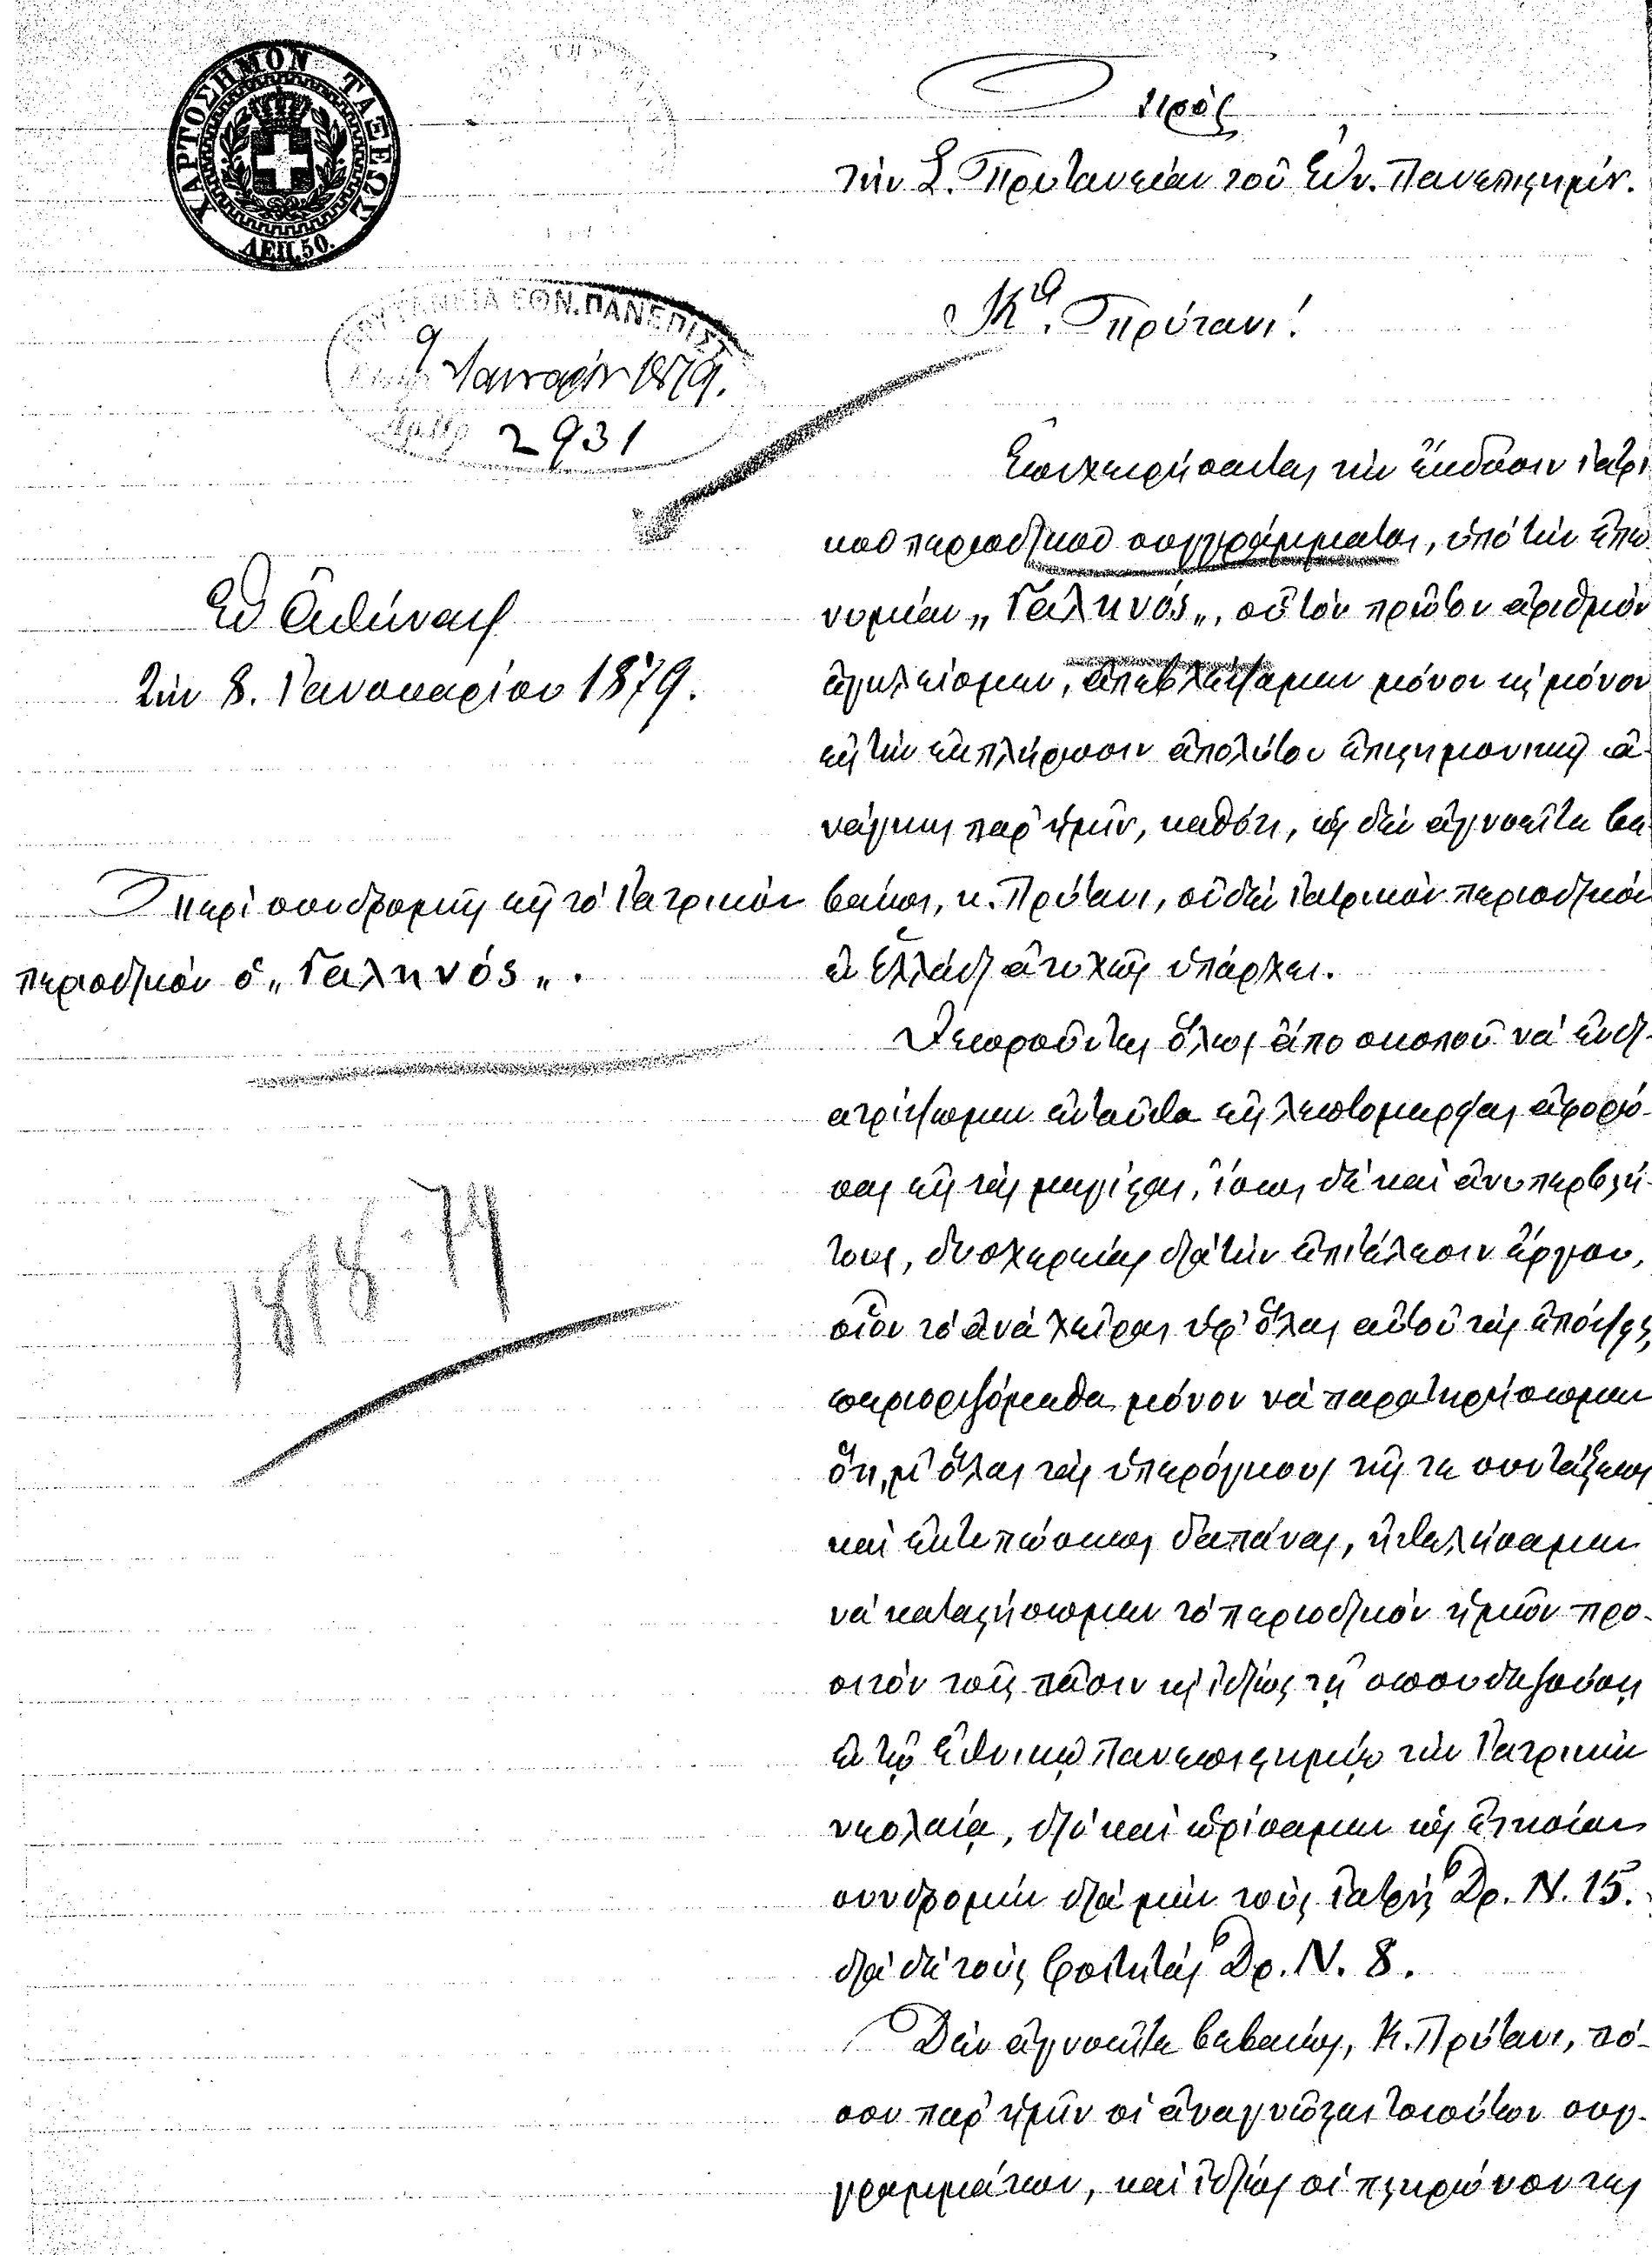 ΧΑΡΤΟΣΗΜΟΝ ΤΑΞΕΩΣ
ΛΕΠ. 50.
Πρὸς
τὴν Σ. Πρυτανείαν τοῦ Ἐθν. Πανεπιστημίου.
ΠΡΥΤΑΝΕΙΑ ΕΘΝ. ΠΑΝΕΠΙΣΤ
9 Ἰανουαρίου 1879.
Ἀρ. Πρ. 2931
Κε. Πρύτανι!
Ἐν Ἀθήναις
τὴν 8. Ἰανουαρίου 1879.
Περὶ συνδρομῆς εἰς τὸ Ἰατρικὸν
περιοδικὸν ὁ „Γαληνός„.
1878-79
Ἐπιχειρήσαντες τὴν ἔκδοσιν ἰατρι
κοῦ περιοδικοῦ συγγράμματος, ὑπὸ τὴν ἐπω
νυμίαν „Γαληνός„, οὗ τὸν πρῶτον ἀριθμὸν
ἐγκλείομεν, ἀπεβλέψαμεν μόνον κ̀ μόνον
εἰς τὴν ἐκπλήρωσιν ἀπολύτου ἐπιστημονικῆς ἀ-
νάγκης παρ' ἡμῖν, καθότι, ὡς δὲν ἀγνοεῖτε βε-
βαίως, κ. Πρύτανι, οὐδὲν Ἰατρικὸν περιοδικὸν
ἐν Ἑλλάδι ἀτυχῶς ὑπάρχει.
Θεωροῦντες ὅλως ἄπο σκοποῦ νὰ ἐνδι-
ατρίψωμεν ἐνταῦθα εἰς λεπτομερείας ἀφορώ-
σας εἰς τὰς μεγίστας, ἴσως δὲ καὶ ἀνυπερβλή-
τους, δυσχερείας διὰ τὴν ἐπιτέλεσιν ἔργου,
οἷον τὸ ἀνὰ χεῖρας ὑφ' ὅλας αὐτοῦ τὰς ἐπόψεις,
περιοριζόμεθα μόνον νὰ παρατηρήσωμεν
ὅτι, μ' ὅλας τὰς ὑπερόγκους τῆς τε συντάξεως
καὶ ἐκτυπώσεως δαπάνας, ἠθελήσαμεν
νὰ καταστήσωμεν τὸ περιοδικὸν ἡμῶν προ-
σιτὸν τοῖς πᾶσιν κ̀ ἰδίως τῇ σπουδαζούσῃ
ἐν τῷ Ἐθνικῷ Πανεπιστημίῳ τὴν Ἰατρικὴν
νεολαίᾳ, διὸ καὶ ὡρίσαμεν ὡς ἐτησίαν
συνδρομὴν διὰ μὲν τοὺς ἰατροὺς Δρ. Ν. 15.
διὰ δὲ τοὺς φοιτητὰς Δρ. Ν. 8.
Δὲν ἀγνοεῖτε βεβαίως, Κ. Πρύτανι, πό-
σον παρ' ἡμῖν οἱ ἀναγνῶσται τοιούτων συγ-
γραμμάτων, καὶ ἰδίως οἱ πληρώνοντες